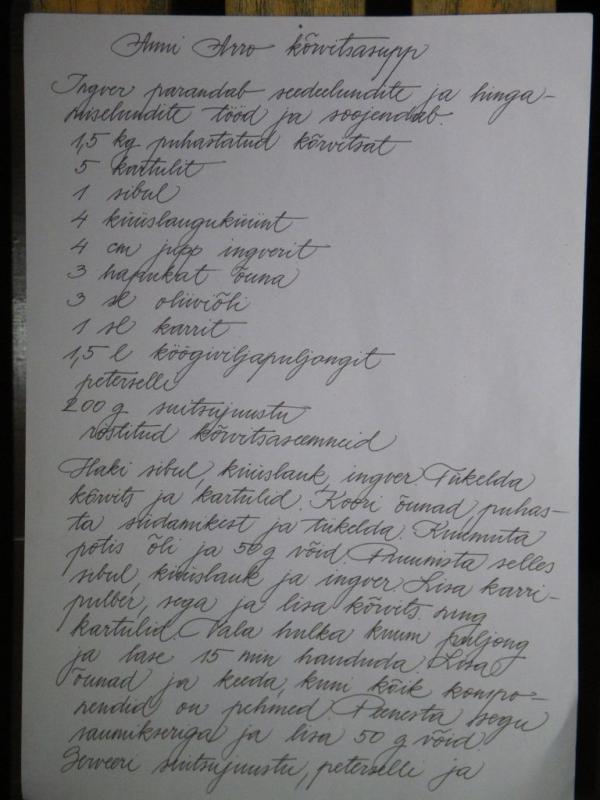 Anni Arro kõrvitsasupp
Ingver parandab seedeelundite ja hinga-
miselundite tööd ja soojendab.
1,5 kg puhastatud kõrvitsat
5 kartulit
1 sibul
4 küüslauguküünt
4 cm jupp ingverit
3 hapukat õuna
3 sl oliiviõli
1 sl karrit
1,5 l köögiviljapuljongit
peterselli
200 g suitsujuustu
röstitud kõrvitsaseemneid
Haki sibul, küüslauk, ingver. Tükelda
kõrvits ja kartulid. Koori õunad, puhas-
ta südamikest ja tükelda. Kuumuta
potis õli ja 50 g võid. Pruunista selles
sibul, küüslauk ja ingver. Lisa karri-
pulber, sega ja lisa kõrvits ning
kartulid. Vala hulka kuum puljong
ja lase 15 min haududa. Lisa
õunad ja keeda, kuni kõik kompo-
nendid on pehmed. Peenesta segu
saumikseriga ja lisa 50 g võid.
Serveeri suitsujuustu, peterselli ja